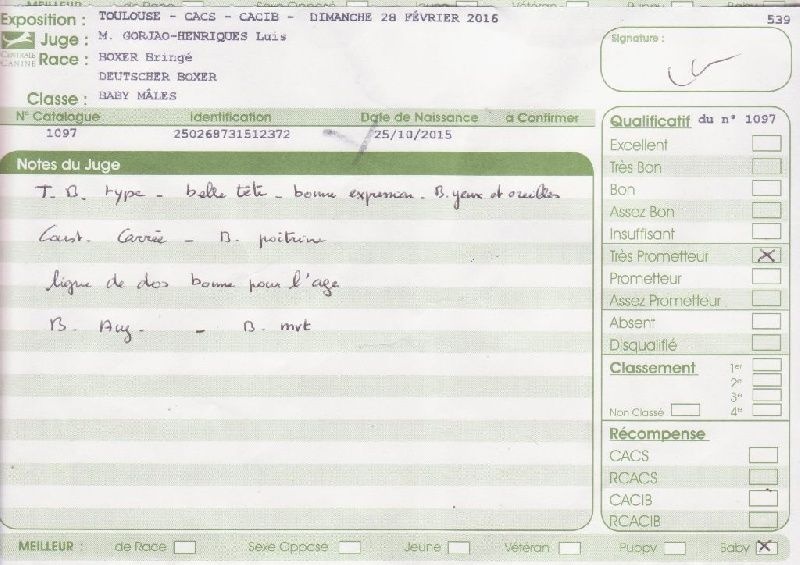 Exposition : TOULOUSE - CACS - CACIB - DIMANCHE 28 FÉVRIER 2016
539
Juge : M. GORJAO-HENRIQUES Luis
Signature :
CENTRALE CANINE
Race : BOXER Bringé
DEUTSCHER BOXER
Classe : BABY MÂLES
N° Catalogue Identification Date de Naissance a Confirmer
1097 250268731512372 25/10/2015
Notes du Juge
T. B. type - belle tête - bonne expression - B. yeux et oreilles
Const. Carrée - B. poitrine
ligne de dos bonne pour l'age
B. Ang. - B. mvt
Qualificatif du n° 1097
Excellent
Très Bon
Bon
Assez Bon
Insuffisant
Très Prometteur X
Prometteur
Assez Prometteur
Absent
Disqualifié
Classement 1er
2e
3e
Non Classé 4e
Récompense
CACS
RCACS
CACIB
RCACIB
MEILLEUR : de Race Sexe Opposé Jeune Vétéran Puppy Baby X